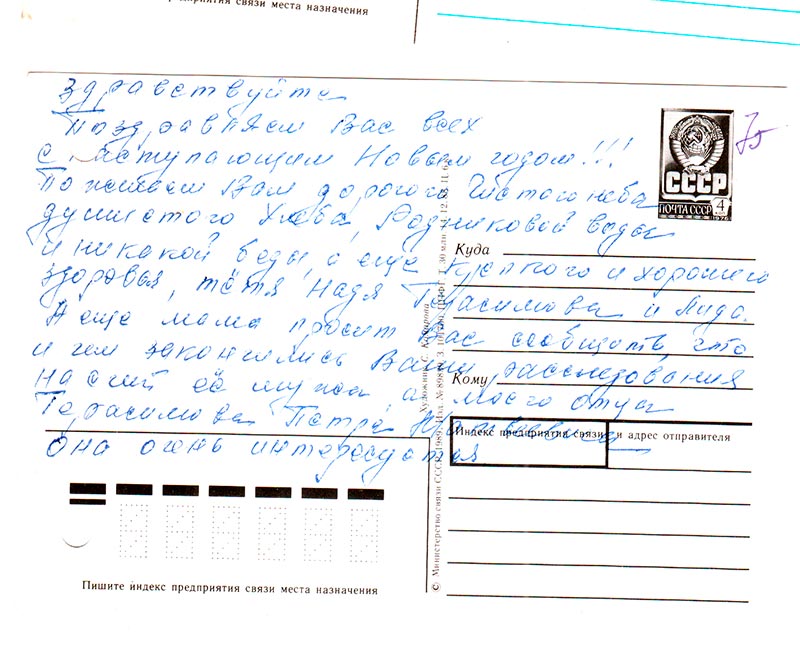 предприятия связи места назначения
Здравствуйте
Поздравляем Вас всех
с наступающим Новым годом!!!
Пожелаем Вам дорогого Чистого неба
душистого Хлеба, Родниковой воды
и никакой беды, а еще крепкого и хорошего
здоровья, тётя Надя Герасимова и Лида.
А еще мама просит Вас сообщить, что
и чем закончились Ваши расследования
на счет её мужа, а моего отца
Герасимова Петра
она очень интересуется
СССР
ПОЧТА СССР 4 коп
1976
Куда
Кому
Индекс предприятия связи и адрес отправителя
Пишите индекс предприятия связи места назначения
© Министерство связи СССР. 1989.
Художник С.